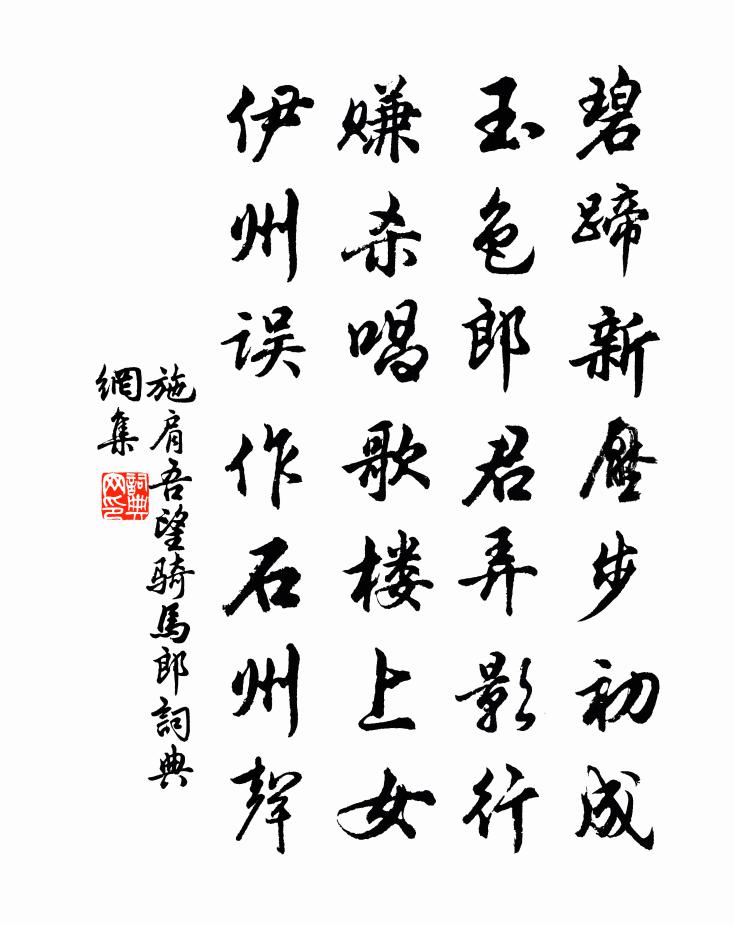 碧蹄新壓步初成
玉色郎君弄影行
赚杀唱歌楼上女
伊州误作石州聲
施肩吾望骑馬郎詞典
網集
詞典
网印